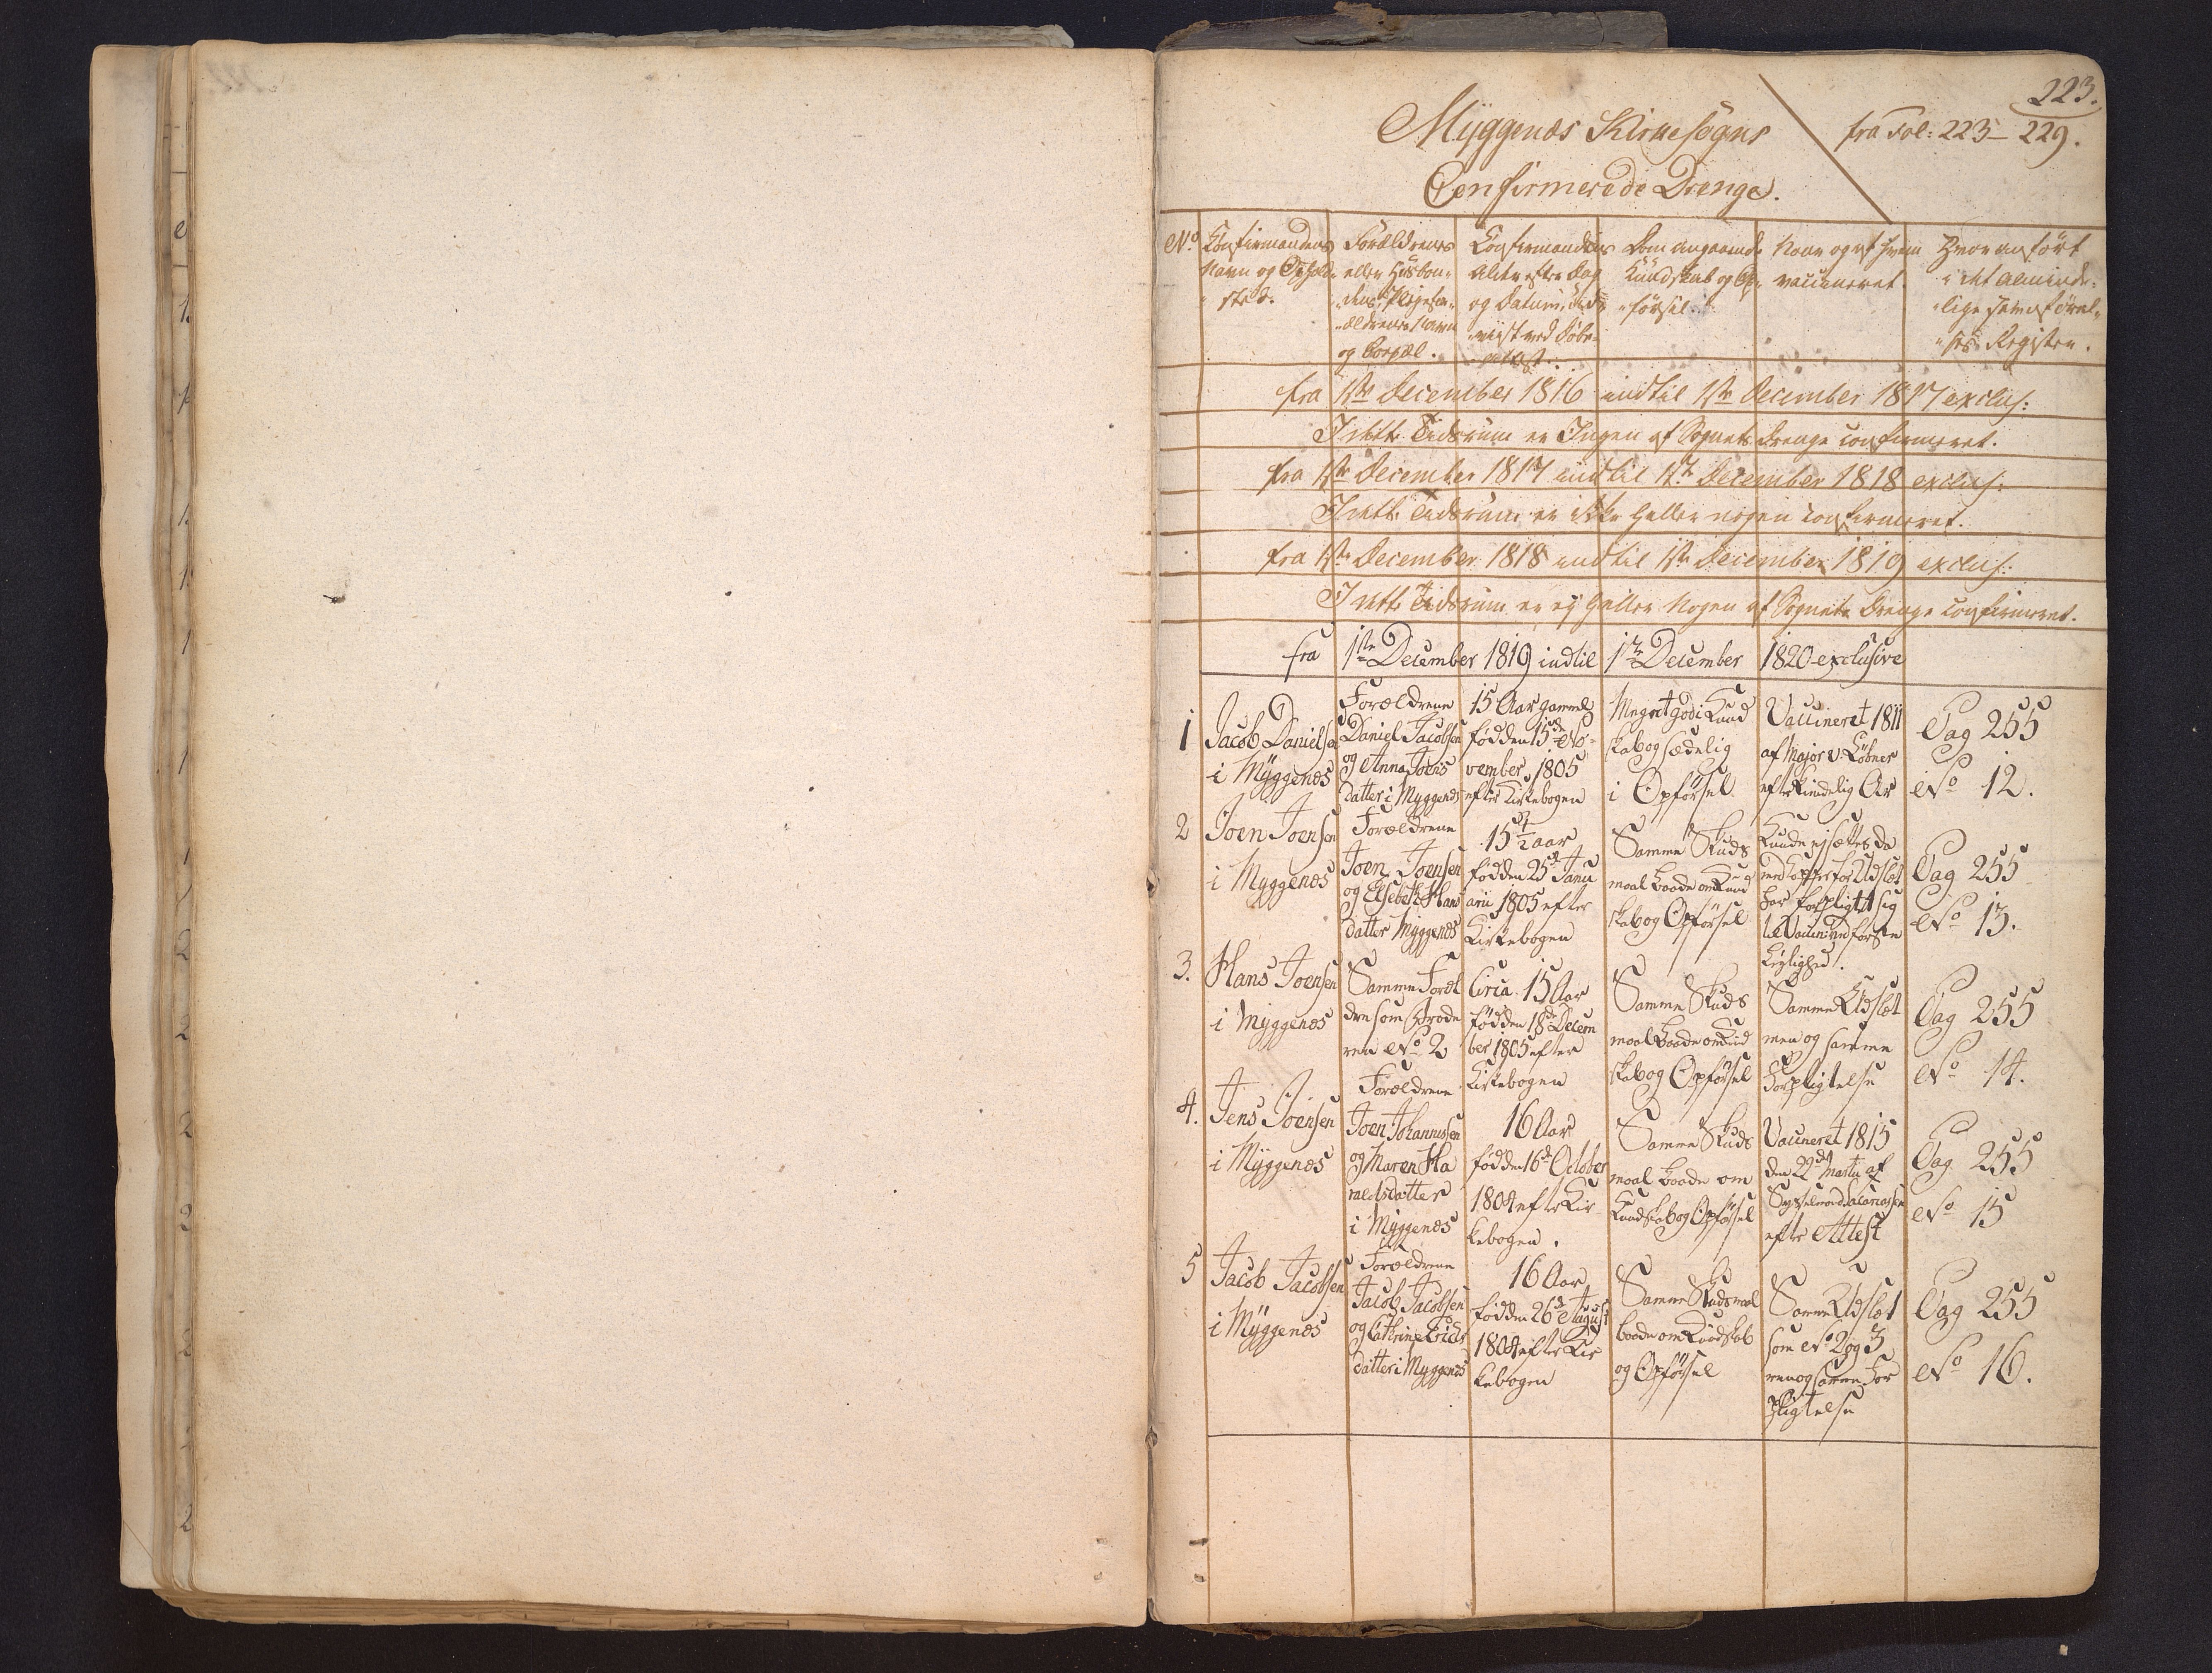 223.
Myggenæs Kirkesogns
fra Fol: 223 - 229.
Confirmerede Drenge.
No. Confirmandens Navn og Opholds sted.
Forældrenes eller Huusbondens, Plejeforældrenes Navn og Boepæl.
Confirmandens Alder efter Dag og Datum, beviist ved Døbeattest.
Dom angaaende Kundskab og Opførsel.
Naar og af hvem vaccineret.
Hvor anført i det almindelige Jevnførelses Register.
fra 1ste December 1816 indtil 1ste December 1817 exclus:
I dette Tidsrum er Ingen af Sognets Drenge confirmeret.
fra 1ste December 1817 indtil 1ste December 1818 exclus:
I dette Tidsrum er ikke heller nogen confirmeret.
fra 1ste December 1818 indtil 1ste December 1819 exclus:
I dette Tidsrum er ej heller Nogen af Sognets Drenge confirmeret.
fra 1ste December 1819 indtil 1ste December 1820 exclusive
1
Jacob Danielsen
i Myggenæs
Forældrene
Daniel Jacobsen
og Anna Joens
datter i Myggenæs
15 Aar gammel
fød den 15de No-
vember 1805
efter Kirkebogen
Meget god Kund
skab og sædelig
i Opførsel
Vaccineret 1811
af Major v. Løbner
efter kiendelig Ar
Pag 255
No 12.
2
Joen Joensen
i Myggenæs
Forældrene
Joen Joensen
og Elsebeth Hans
datter Myggenæs
15 1/2 aar
fød den 25de Janu
arii 1805 efter
Kirkebogen
Samme Skuds
maal baade om Kund
skab og Opførsel
Kunde ej sættes da
med Kopper for Udslæt
har forpligtet sig
til Vaccine ved første
Leylighed.
Pag 255
No 13.
3.
Hans Joensen
i Myggenæs
Samme Foræl
dre som Brode
ren No 2
Circa 15 Aar
fød den 18de Decem
ber 1805 efter
Kirkebogen
Samme Skuds
maal baade om Kund
skab og Opførsel
Samme Udslæt
men og samme
Forpligtelse
Pag 255
No 14.
4.
Jens Joensen
i Myggenæs
Forældrene
Joen Johannesen
og Maren Ha
raldsdatter
i Myggenæs
16 Aar
fød den 16de October
1804 efter Kir
kebogen.
Samme Skuds
maal baade om
Kundskab og Opførsel
Vaccineret 1815
den 22de Martii af
Sysselmand Zacariassen
efter Attest
Pag 255
No 15
5
Jacob Jacobsen
i Myggenæs
Forældrene
Jacob Jacobsen
og Cathrine Erichs
datter i Myggenæs
16 Aar
fød den 26de August
1804 efter Kir
kebogen
Samme Skudsmaal
baade om Kundskab
og Opførsel
Samme Udslæt
som No 2 og 3
men og samme For
pligtelse
Pag 255
No 16.